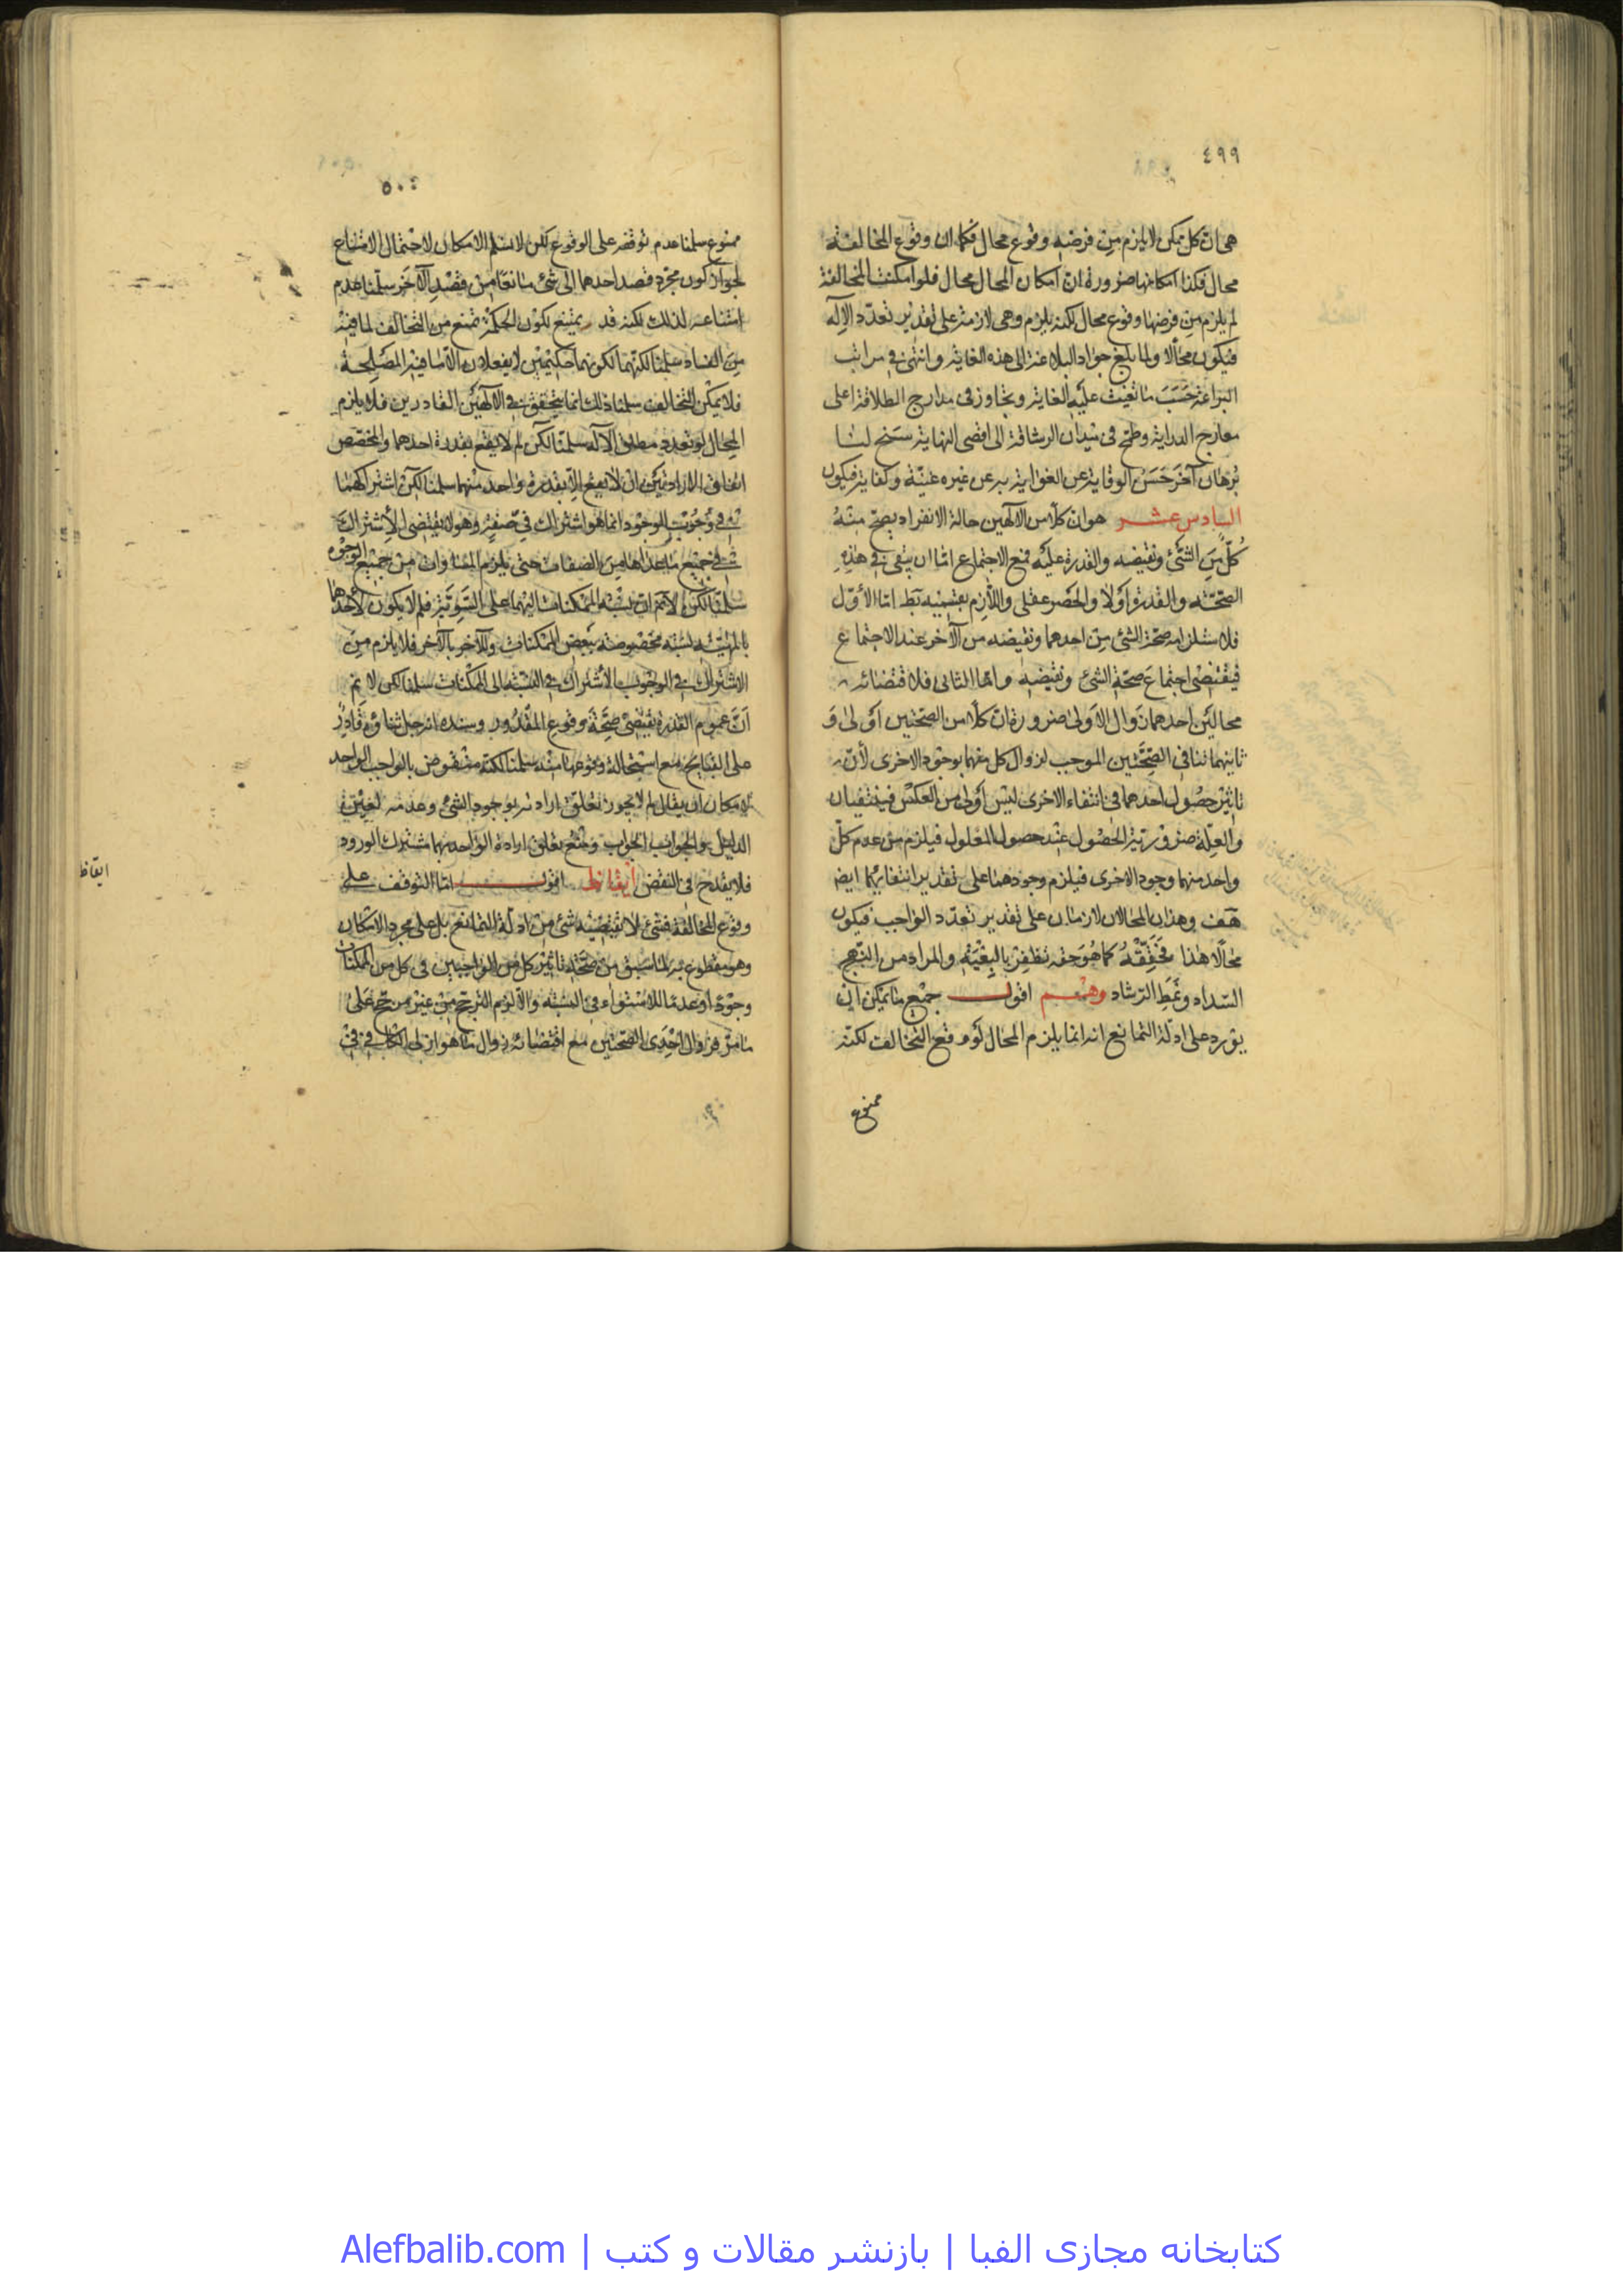 ٤٩٩
هى ان كل ممكن لا يلزم من فرضه وقوع محال فكما ان وقوع المخالفة
محال فكذا امكانها ضرورة ان امكان المحال محال فلو امكنت المخالفة
لم يلزم من فرضها وقوع محال لكنه يلزم وهى لازمة على تقدير تعدد الاله
فيكون محالا ولما بلغ جواد البلاغة الى هذه الغاية وانتهى فى مراتب
البراعة حسب ما تغيث عليه الغاية وتجاوز فى مدارج الطلاقة اعلى
معارج الدراية وطمح فى ميدان الرشاقة الى اقصى النهاية سنح لنا
برهان آخر حسن الوقاية عن الغواية به عن غيره غنية وكفاية فيكون
السادس عشر هو ان كلا من الالهين حالة الانفراد يصح منه
كل من الشئ ونقيضه والقدرة عليه فمع الاجتماع اما ان يبقى فى هذه
الصحة والقدرة اولا والحصر عقلى واللازم بقسميه بط اما الأول
فلاستلزامه صحة الشئ من احدهما ونقيضه من الآخر عند الاجتماع
فيقتضى اجتماع صحة الشئ ونقيضه واما الثانى فلاقتضائه
محالين احدهما زوال الاولى ضرورة ان كلا من الصحتين اولى و
ثانيهما تنافى الصحتين الموجب لزوال كل منهما بوجود الاخرى لأن
تاثير حصول احدهما فى انتفاء الاخرى ليس اولى من العكس فينتفيان
والعلة ضرورية الحصول عند حصول المعلول فيلزم من عدم كل
واحد منهما وجود الاخرى فيلزم وجودهما على تقدير انتفائهما ايضه
هف وهذان المحالان لازمان على تقدير تعدد الواجب فيكون
محالا هذا فحققه كما هو حقه تظفر بالبغية والمراد من النهج
السداد ونمط الرشاد وهم اقول جميع ما يمكن ان
يورد على ادلة التمانع انه انما يلزم المحال لو وقع التخالف لكنه
ممنوع
٥٠٠
ممنوع سلمنا عدم توقفه على الوقوع لكن لا نسلم الامكان لاحتمال الامتناع
لجواز كون مجرد قصد احدهما الى شئ مانعا من قصد الآخر سلمنا عدم
امتناعه لذلك لكنه قد يمتنع لكون الحكمة تمنع من التخالف لما فيه
من الفساد سلمنا لكنهما لكونهما حكيمين لا يفعلان الا ما فيه المصلحة
فلا يمكن التخالف سلمنا ذلك انما يتحقق فى الالهين القادرين فلا يلزم
المحال لو تعدد مطلق الاله سلمنا لكن لم لا يقع بقدرة احدهما والمخصص
اتفاق الارادتين ان لا يقع الا بقدرة واحد منهما سلمنا لكن اشتراكهما
فى وجوب الوجود انما هو اشتراك فى صفة وهو لا يقتضى الاشتراك
فى جميع ما عداها من الصفات حتى يلزم المساواة من جميع الوجوه
سلمنا لكن لا نم ان نسبة الممكنات اليهما على السوية فلم لا يكون لاحدهما
بالمهية نسبة مخصوصة ببعض الممكنات وللآخر بالآخر فلا يلزم من
الاشتراك فى الوجوب الاشتراك فى النسبة الى الممكنات سلمنا لكن لا نم
ان عموم القدرة يقتضى صحة وقوع المقدور وسنده انه جل ثناؤه قادر
على القبايح مع استحالة وقوعها منه سلمنا لكنه منقوض بالواجب الواحد
لامكان ان يقال لم لا يجوز تعلق ارادته بوجود الشئ وعدمه لعين
الدليل والجواب الجواب ومنع تعلق ارادة الواحد بهما مشترك الورود
فلا يقدح فى النقض ايقاظ اقول اما التوقف على
وقوع المخالفة فشئ لا يقتضيه شئ من ادلة التمانع بل على مجرد الامكان
وهو مقطوع به لما سبق من صحة تاثير كل من الواجبين فى كل من الممكنات
وجودا وعدما للاستواء فى النسبة والا لزم الترجح من غير مرجح على
ما مر فزوال احدى الصحتين مع اقتضائه زوال ما هو ازلى
ايقاظ
کتابخانه مجازی الفبا | بازنشر مقالات و کتب | Alefbalib.com